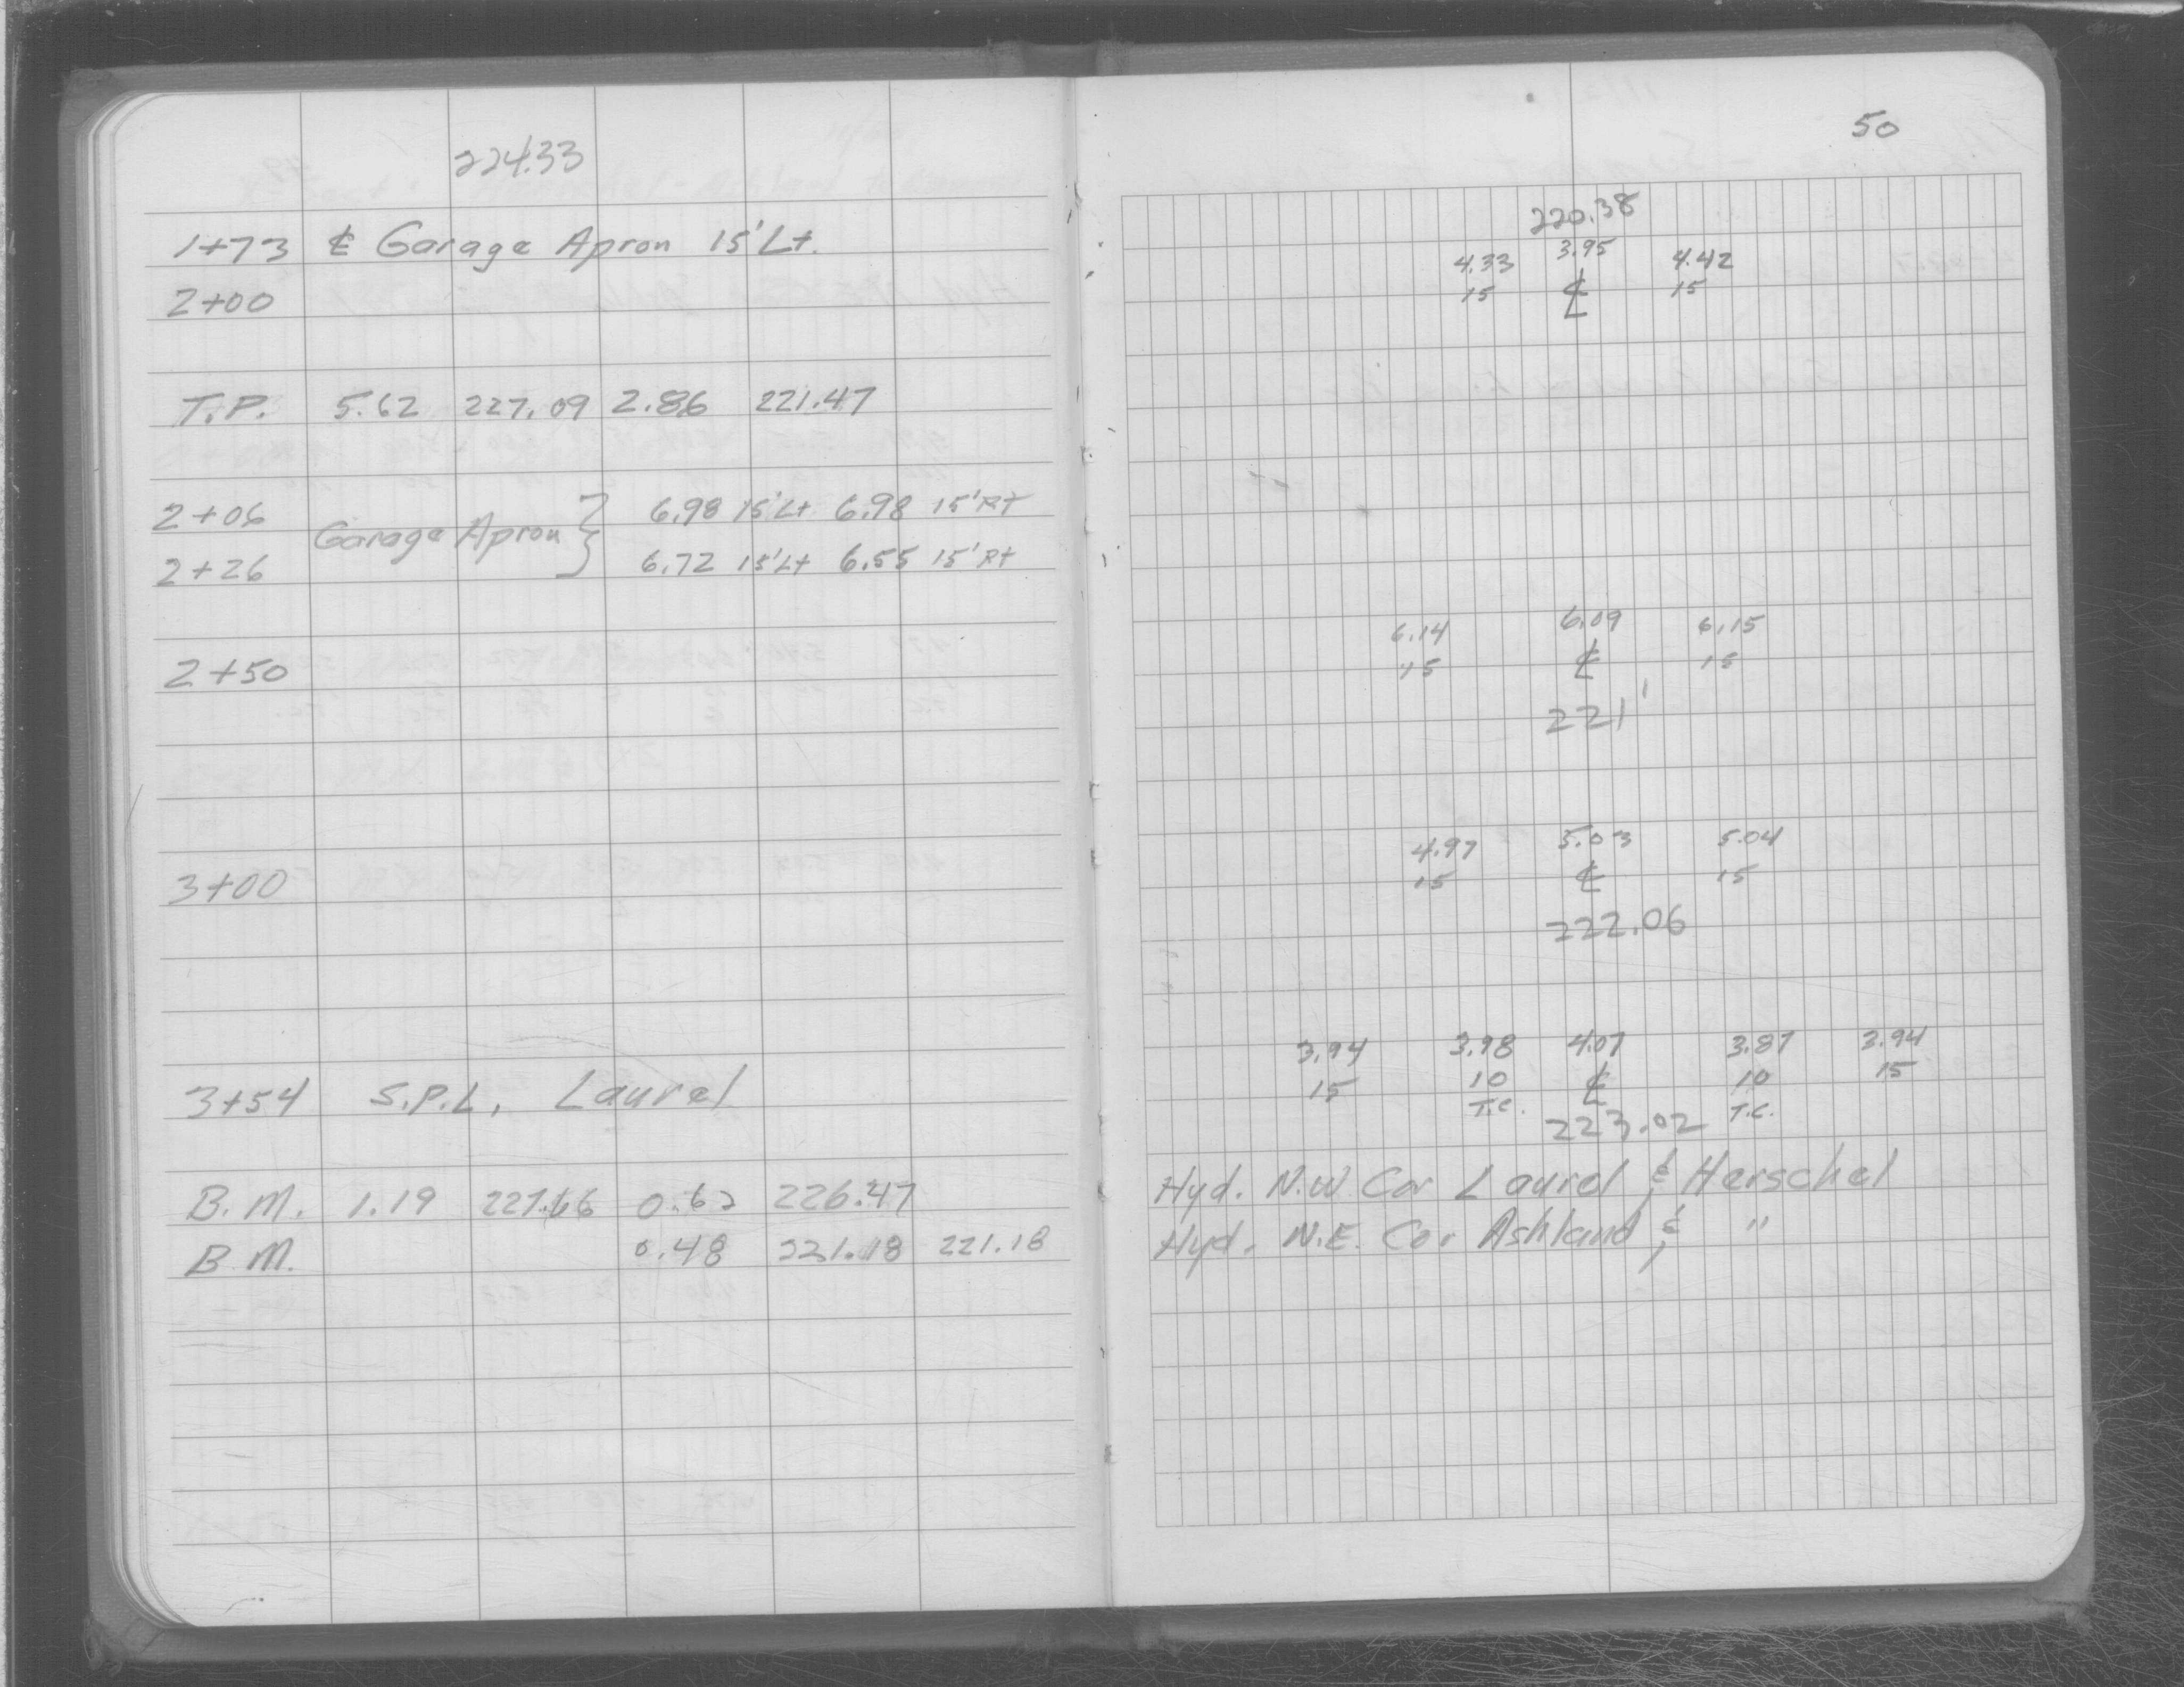 224.33
1+73 ℄ Garage Apron 15' Lt.
2+00
T.P. 5.62 227.09 2.86 221.47
2+06 6.98 15' Lt 6.98 15' Rt
Garage Apron }
2+26 6.72 15' Lt 6.55 15' Rt
2+50
3+00
3+54 S.P.L. Laurel
B.M. 1.19 227.66 0.62 226.47
B.M. 0.48 221.18 221.18
50
220.38
4.33 3.95 4.42
15 ℄ 15
6.14 6.09 6.15
15 ℄ 15
221'
4.97 5.03 5.04
15 ℄ 15
222.06
3.94 3.98 4.07 3.87 3.94
15 10 ℄ 10 15
T.C. T.C.
223.02
Hyd. N.W. Cor Laurel & Herschel
Hyd. N.E. Cor Ashland & "